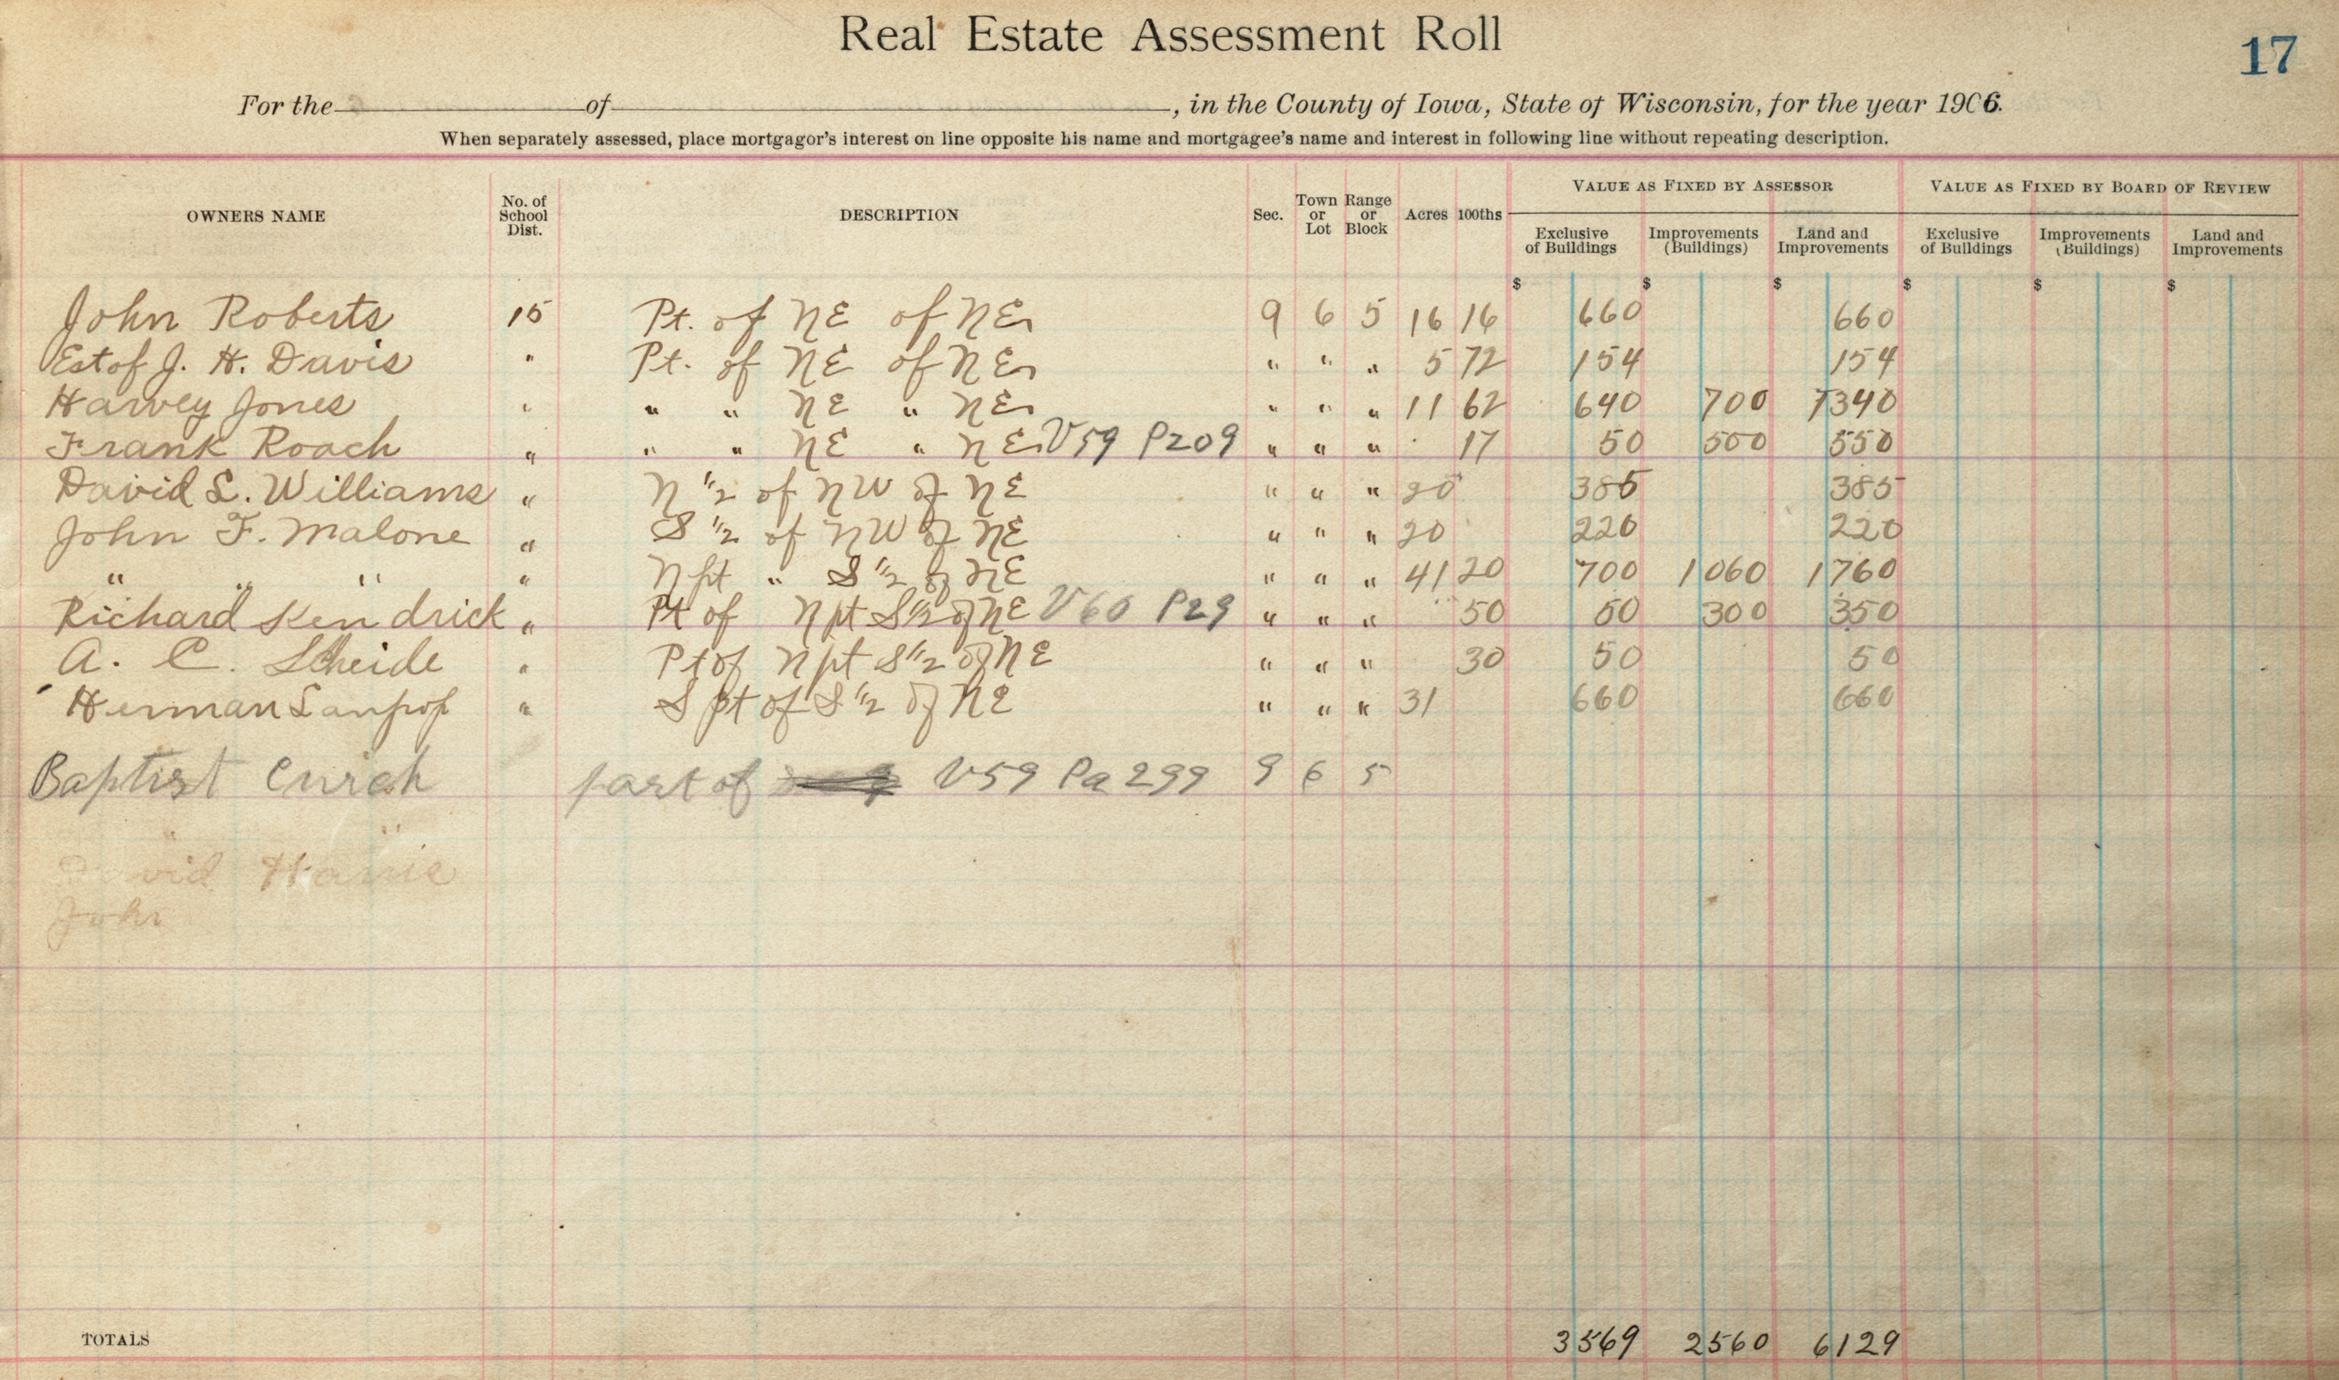 Real Estate Assessment Roll
17
For the of , in the County of Iowa, State of Wisconsin, for the year 1906.
When separately assessed, place mortgagor's interest on line opposite his name and mortgagee's name and interest in following line without repeating description.
OWNERS NAME No. of School Dist. DESCRIPTION Sec. Town or Lot Range or Block Acres 100ths VALUE AS FIXED BY ASSESSOR VALUE AS FIXED BY BOARD OF REVIEW
Exclusive of Buildings Improvements (Buildings) Land and Improvements Exclusive of Buildings Improvements (Buildings) Land and Improvements
$ $ $ $ $ $
John Roberts 15 Pt. of NE of NE 9 6 5 16 16 660 660
Est of J. H. Davis " Pt. of NE of NE " " " 5 72 154 154
Harvey Jones " " " NE " NE " " " 11 62 640 700 1340
Frank Roach " " " NE " NE V59 P209 " " " 17 50 500 550
David S. Williams " N 1/2 of NW of NE " " " 20 385 385
John F. Malone " S 1/2 of NW of NE " " " 20 220 220
" " " " N pt " S 1/2 of NE " " " 41 20 700 1060 1760
Richard Kendrick " Pt of N pt S 1/2 of NE V60 P29 " " " 50 50 300 350
A. C. Scheide " Pt of N pt S 1/2 of NE " " " 30 50 50
Herman " S pt of S 1/2 of NE " " " 31 660 660
Baptist Curch part of V59 Pa 299 9 6 5
David Harris
John
TOTALS 3569 2560 6129